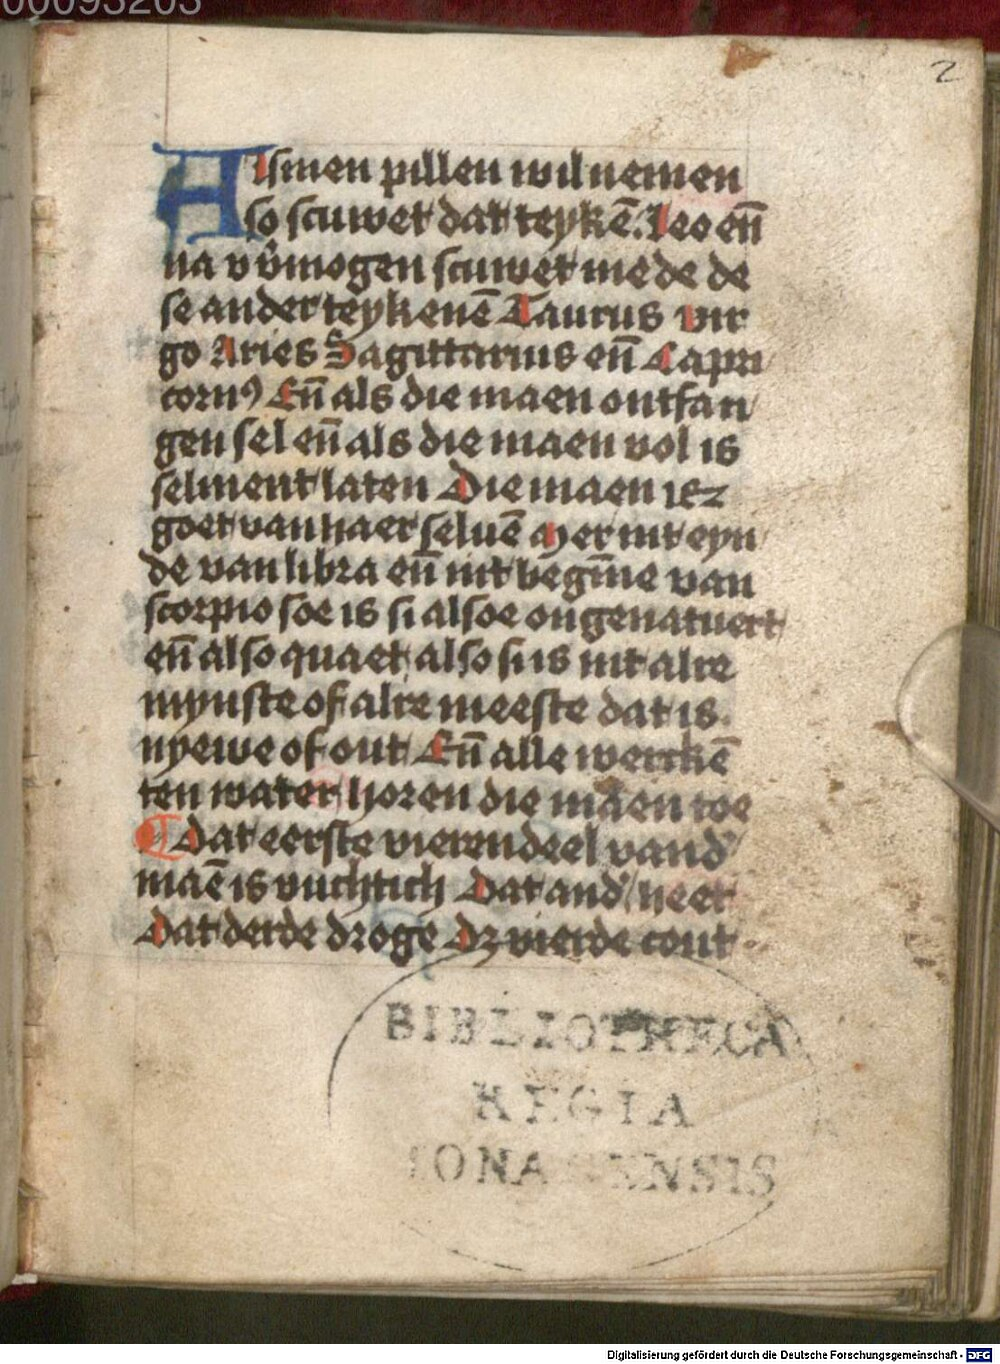 00093203
2
Alsmen pillen wil nemen
so scuwet dat teykē. Leo eñ
na v v̄mogen scuwet mede de
se ander teykenē Taurus vir
go Aries Sagittarius eñ Capri
cornꝰ Eñ als die maen ontfan
gen sel eñ als die maen vol is
selment laten Die maen is
goet van haer seluē Mer int eyn
de van libra eñ int begīne van
scorpio soe is si alsoe ongenatuert
eñ also quaet also si is int alre
mynste of alre meeste dat is
nyewe of out Eñ alle werckē
ten water horen die maen toe
Dat eerste vierendeel vand'
maē is vuchtich Dat and' heet
Dat derde droge Dz vierde cout
BIBLIOTHECA
REGIA
MONACENSIS
Digitalisierung gefördert durch die Deutsche Forschungsgemeinschaft - DFG